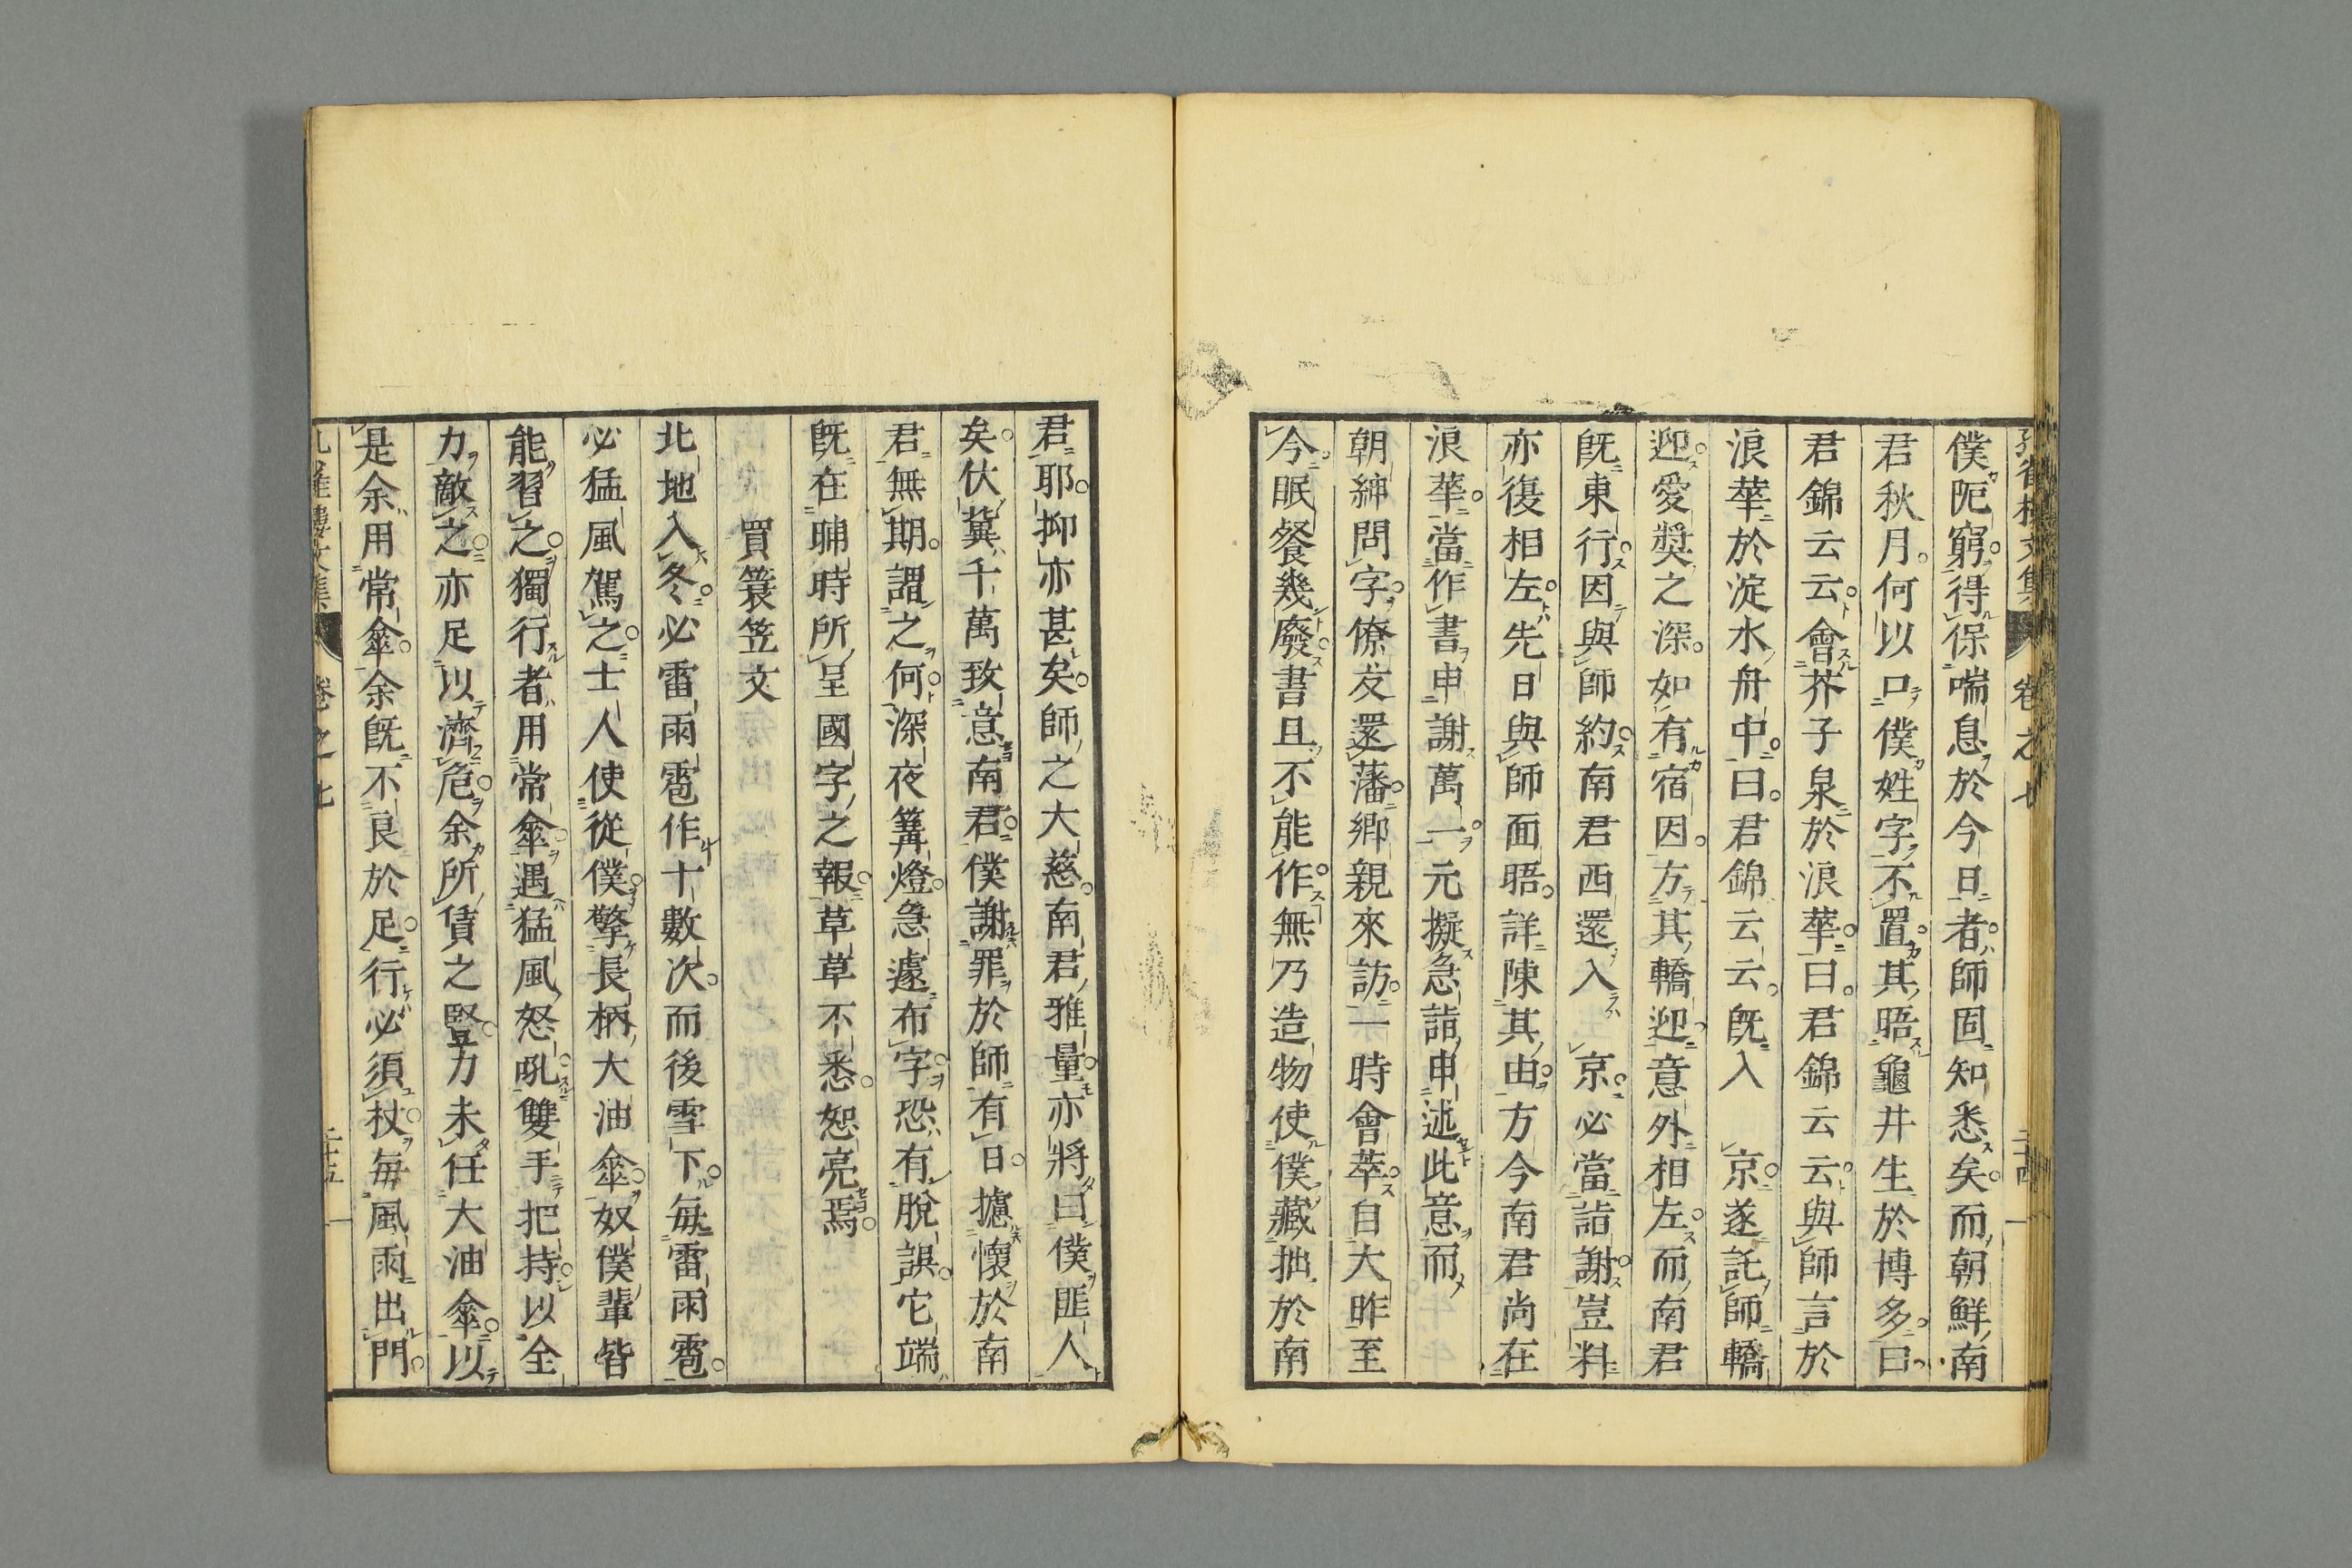 僕阨窮得保喘息於今日者師固知悉矣而朝鮮南
君秋月何以口僕姓字不置其晤龜井生於博多曰
君錦云云會芥子泉於浪華曰君錦云云與師言於
浪華於淀水舟中曰君錦云云既入 京遂託師轎
迎愛奬之深如有宿因方其轎迎意外相左而南君
既東行因與師約南君西還入 京必當詣謝豈料
亦復相左先日與師面晤詳陳其由方今南君尚在
浪華當作書申謝萬一元擬急詣申述此意而
朝紳問字僚友還藩鄉親來訪一時會萃自大昨至
今眠餐幾廢書且不能作無乃造物使僕藏拙於南
君耶抑亦甚矣師之大慈南君雅量亦將曰僕匪人
矣伏冀千萬致意南君僕謝罪於師有日攄懷於南
君無期謂之何深夜篝燈急遽布字恐有脫誤它端
既在晡時所呈國字之報草草不悉恕亮焉
買簑笠文
北地入冬必雷雨雹作十數次而後雪下每雷雨雹
必猛風駕之士人使從僕擎長柄大油傘奴僕輩皆
能習之獨行者用常傘遇猛風怒吼雙手把持以全
力敵之亦足以濟危余所賃之豎力未任大油傘以
是余用常傘余既不良於足行必須杖每風雨出門
卷之七
二十四
卷之七
二十五